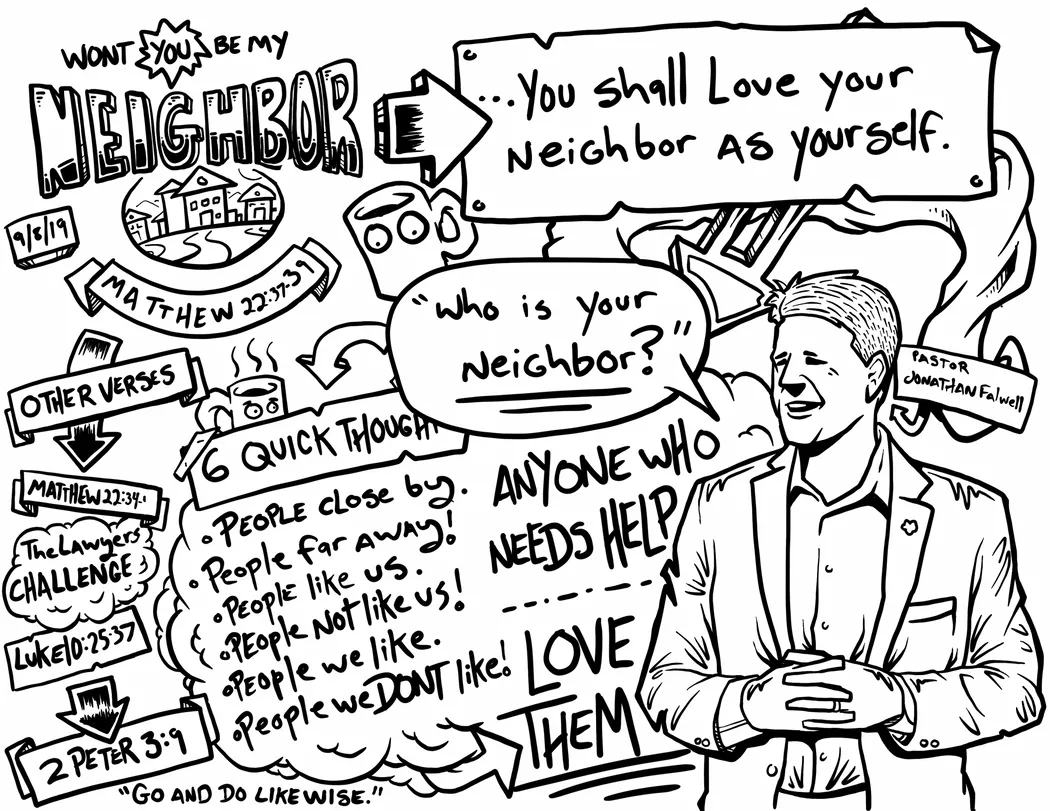 WONT YOU BE MY
NEIGHBOR
9/8/19
MATTHEW 22:37-39
...You shall Love your
Neighbor As yourself.
"Who is your
Neighbor?"
PASTOR
JONATHAN Falwell
OTHER VERSES
MATTHEW 22:34-
The Lawyers
CHALLENGE
LUKE 10:25-37
2 PETER 3:9
"GO AND DO LIKEWISE."
6 QUICK THOUGHT
• PEOPLE close by.
• People far AWAY!
• PEOPLE like us.
• PEOPLE NOT like us!
• PEOPLE we like.
• People we DONT like!
ANYONE WHO
NEEDS HELP
LOVE
THEM